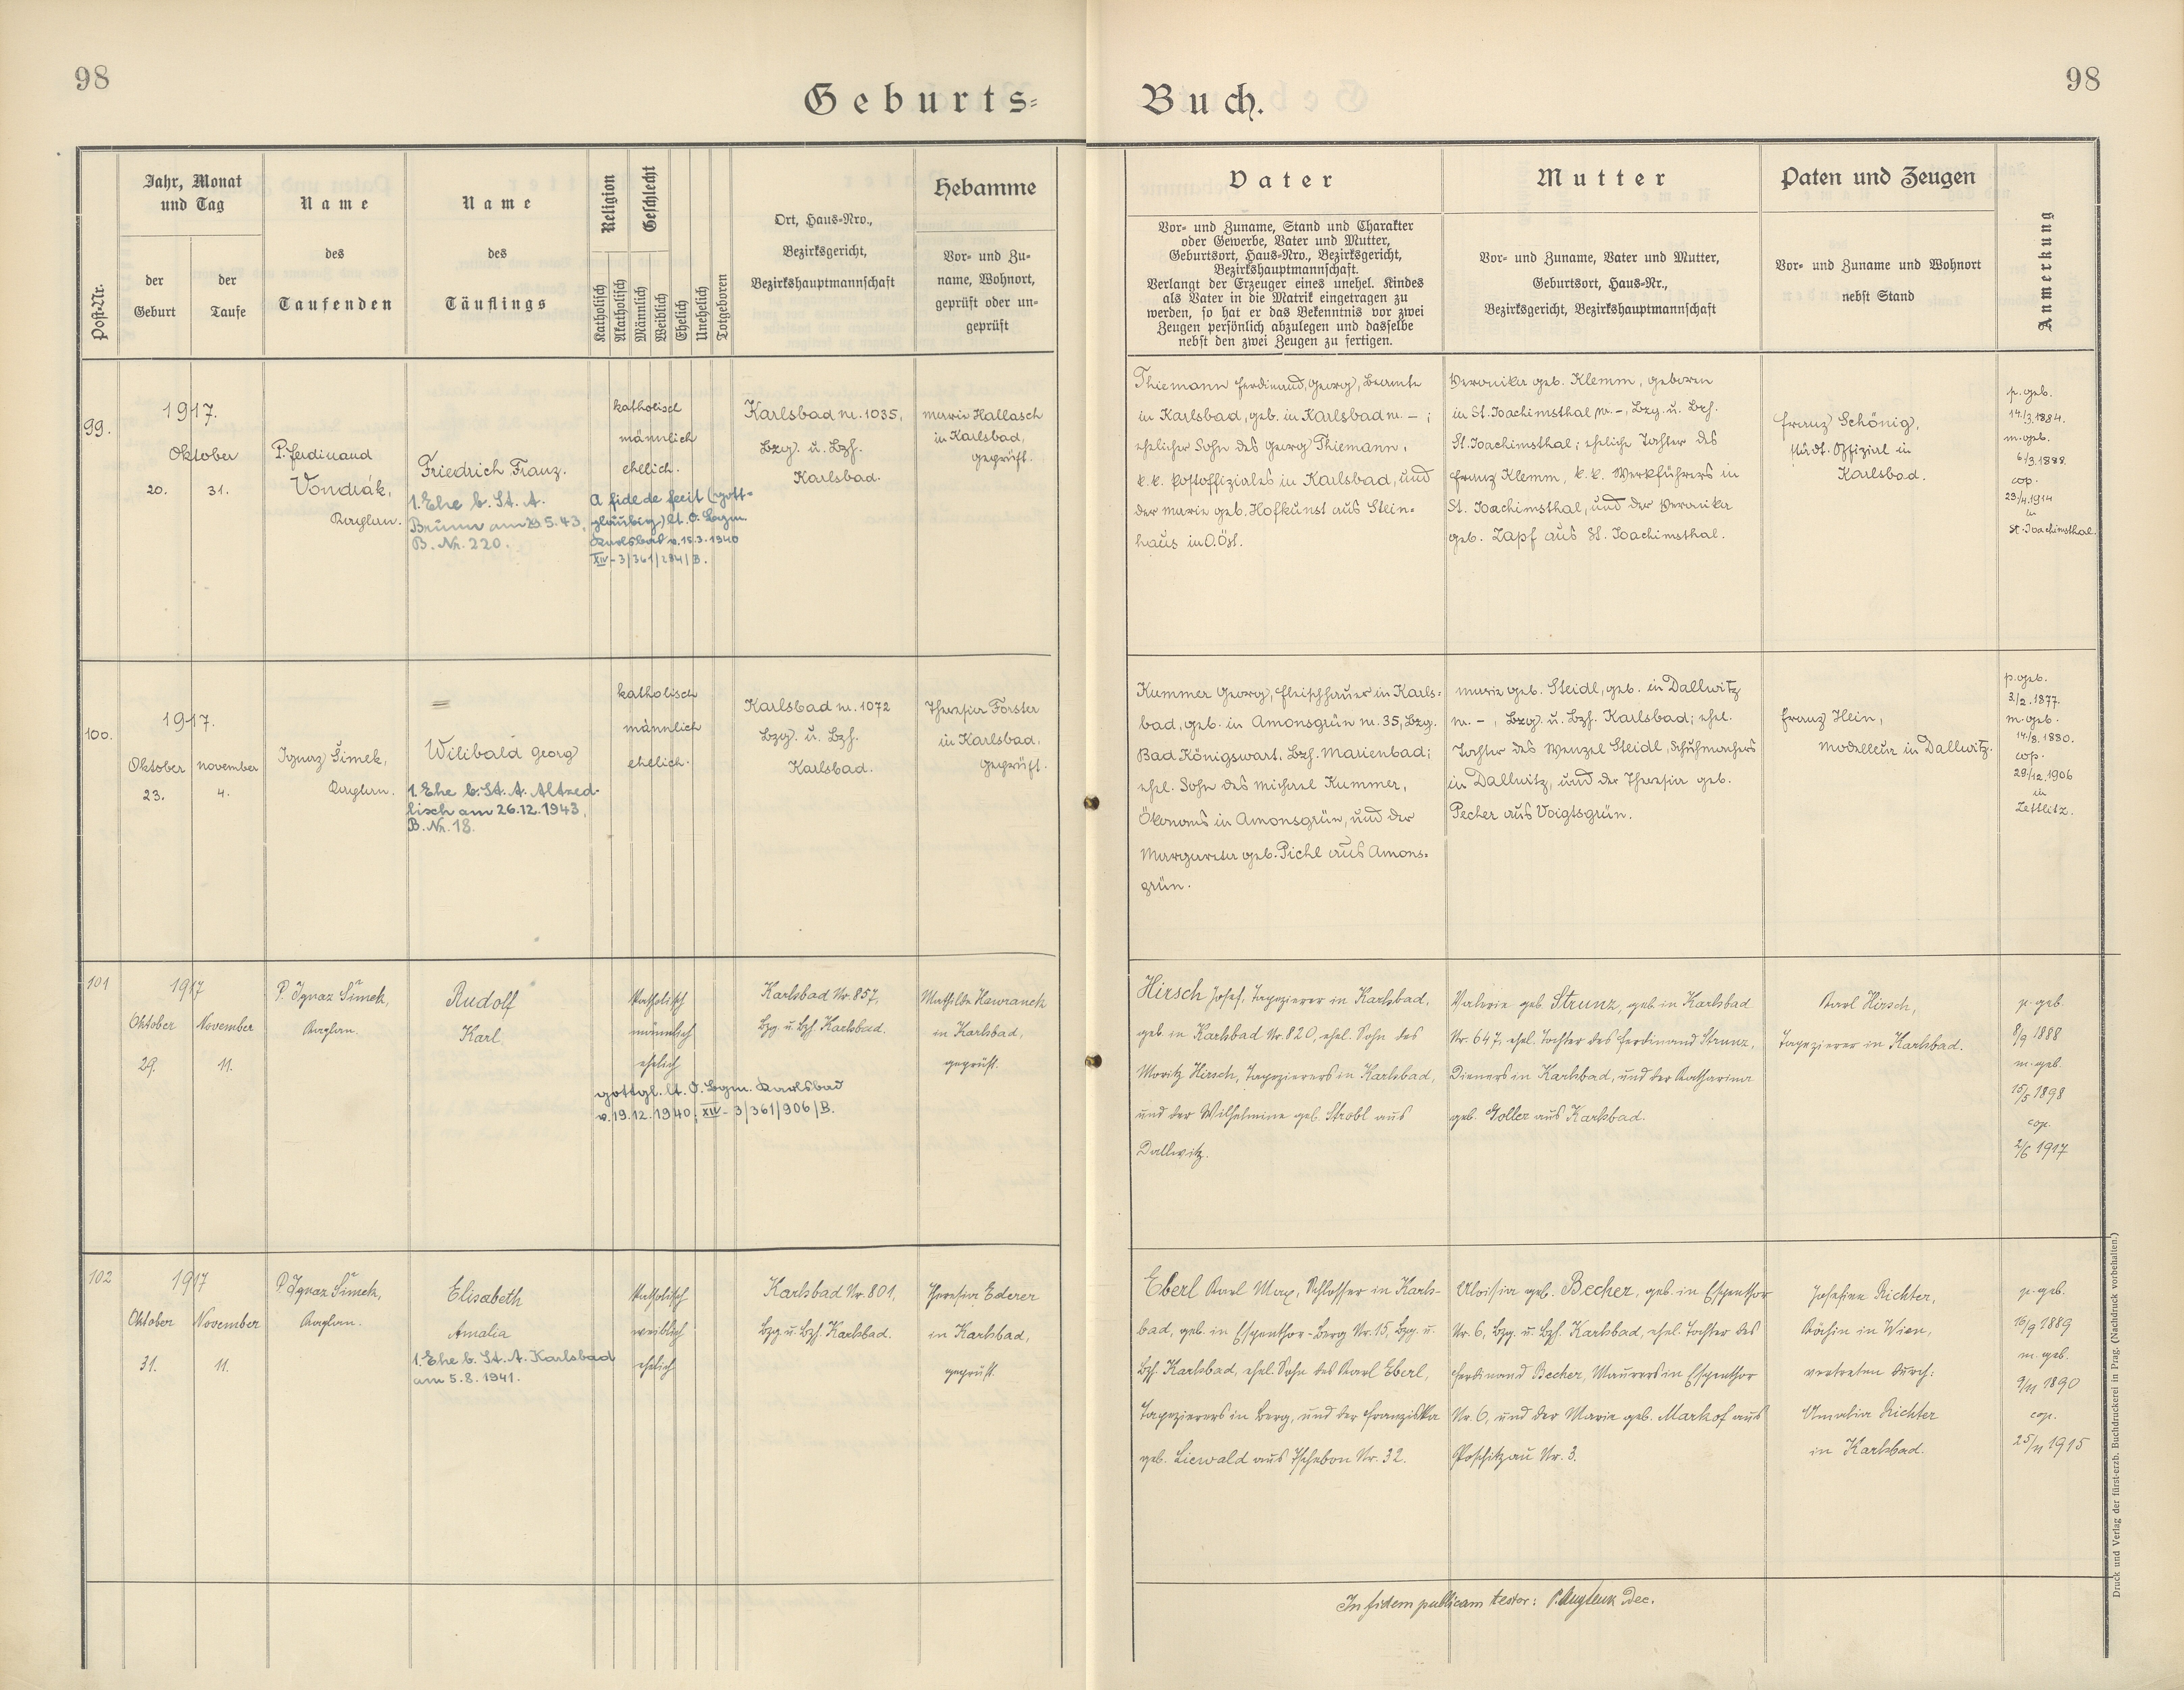 98
98
Geburts=
Buch.
Post-Nr.
Jahr, Monat
und Tag
der
Geburt
der
Taufe
Name
des
Taufenden
Name
des
Täuflings
Religion
Geschlecht
Katholisch
Akatholisch
Männlich
Weiblich
Ehelich
Unehelich
Totgeboren
Ort, Haus=Nro.,
Bezirksgericht,
Bezirkshauptmannschaft
Hebamme
Vor= und Zu=
name, Wohnort,
geprüft oder un=
geprüft
Vater
Vor= und Zuname, Stand und Charakter
oder Gewerbe, Vater und Mutter,
Geburtsort, Haus=Nro., Bezirksgericht,
Bezirkshauptmannschaft.
Verlangt der Erzeuger eines unehel. Kindes
als Vater in die Matrik eingetragen zu
werden, so hat er das Bekenntnis vor zwei
Zeugen persönlich abzulegen und dasselbe
nebst den zwei Zeugen zu fertigen.
Mutter
Vor= und Zuname, Vater und Mutter,
Geburtsort, Haus=Nr.,
Bezirksgericht, Bezirkshauptmannschaft
Paten und Zeugen
Vor= und Zuname und Wohnort
nebst Stand
Anmerkung
99.
1917.
Oktober
20.
31.
P. Ferdinand
Vondrák,
Kaplan.
Friedrich Franz.
1. Ehe b. St. A.
Brünn am 29.5.43,
B. Nr. 220.
katholisch
männlich
ehelich.
A fide de fecit (gott=
gläubig) lt. O. Bgm.
Karlsbad v. 15.3.1940
XIV-3/361/284/B.
Karlsbad nr. 1035,
Bzg. u. Bzh.
Karlsbad.
Marie Hallasch
in Karlsbad,
geprüft.
Thiemann Ferdinand, Georg, Beamte
in Karlsbad, geb. in Karlsbad nr. – ;
ehelicher Sohn des Georg Thiemann,
k. k. Postoffiziales in Karlsbad, und
der Marie geb. Hofkunst aus Stein=
haus in O.Öst.
Veronika geb. Klemm, geboren
in St. Joachimsthal, nr. –, Bzg. u. Bzh.
St. Joachimsthal; eheliche Tochter des
Franz Klemm, k. k. Werkführers in
St. Joachimsthal, und der Veronika
geb. Zapf aus St. Joachimsthal.
Franz Schönig,
städt. Offizial in
Karlsbad.
p. geb.
14./3.1884.
m. geb.
6/3.1888.
cop.
23/4.1914
in
St. Joachimsthal.
100.
1917.
Oktober
23.
November
4.
Ignaz Šimek,
Kaplan.
=
Wilibald Georg
1. Ehe b. St. A. Altred-
lisch am 26.12.1943,
B. Nr. 18.
katholisch
männlich
ehelich.
Karlsbad nr. 1072
Bzg. u. Bzh.
Karlsbad.
Theresia Forster
in Karlsbad,
geprüft.
Kummer Georg, Fleischhauer in Karls=
bad, geb. in Amonsgrün nr. 35, Bzg.
Bad Königswart, Bzh. Marienbad;
ehel. Sohn des Michael Kummer,
Ökonoms in Amonsgrün, und der
Margareta geb. Pichl aus Amons=
grün.
Marie geb. Steidl, geb. in Dallwitz
nr. – , Bzg. u. Bzh. Karlsbad; ehel.
Tochter des Wenzel Steidl, Schuhmachers
in Dallwitz, und der Theresia geb.
Pecher aus Voigtsgrün.
Franz Hein,
Modelleur in Dallwitz.
p. geb.
3./2.1877.
m. geb.
14/8.1880.
cop.
29/12.1906
in
Zettlitz.
101
1917
Oktober
29.
November
11.
P. Ignaz Šimek,
Kaplan.
Rudolf
Karl.
katholisch
männlich
ehelich
gottgl. lt. O. Bgm. Karlsbad
v. 19.12.1940; XIV-3/361/906/B.
Karlsbad Nr. 857,
Bzg. u. Bzh. Karlsbad.
Mathilde Hawranek
in Karlsbad,
geprüft.
Hirsch Josef, Tapezierer in Karlsbad,
geb. in Karlsbad Nr. 820, ehel. Sohn des
Moritz Hirsch, Tapezierers in Karlsbad,
und der Wilhelmine geb. Strobl aus
Dallwitz.
Valerie geb. Strunz, geb. in Karlsbad
Nr. 647, ehel. Tochter des Ferdinand Strunz,
Dieners in Karlsbad, und der Katharina
geb. Goller aus Karlsbad.
Karl Hirsch,
Tapezierer in Karlsbad.
p. geb.
8/9 1888
m. geb.
15/5 1898
cop.
2/6 1917
102
1917
Oktober
31.
November
11.
P. Ignaz Šimek,
Kaplan.
Elisabeth
Amalia
1. Ehe b. St. A. Karlsbad
am 5.8.1941.
katholisch
weiblich
ehelich
Karlsbad Nr. 801,
Bzg. u. Bzh. Karlsbad.
Theresia Ederer
in Karlsbad,
geprüft.
Eberl Karl Max, Schlosser in Karls-
bad, geb. in Espenthor-Berg Nr. 15, Bzg. u.
Bzh. Karlsbad, ehel. Sohn des Karl Eberl,
Tapezierers in Berg, und der Franziska
geb. Liewald aus Tschebon Nr. 32.
Aloisia geb. Becher, geb. in Espenthor
Nr. 6, Bzg. u. Bzh. Karlsbad, ehel. Tochter des
Ferdinand Becher, Maurers in Espenthor
Nr. 6, und der Marie geb. Markof aus
Poschitzau Nr. 3.
Josefine Richter,
Köchin in Wien,
vertreten durch:
Amalia Richter
in Karlsbad.
p. geb.
16/9 1889
m. geb.
9/11 1890
cop.
25/11 1915
In fidem publicam testor:
Dec.
Druck und Verlag der fürst-erzb. Buchdruckerei in Prag. (Nachdruck vorbehalten.)